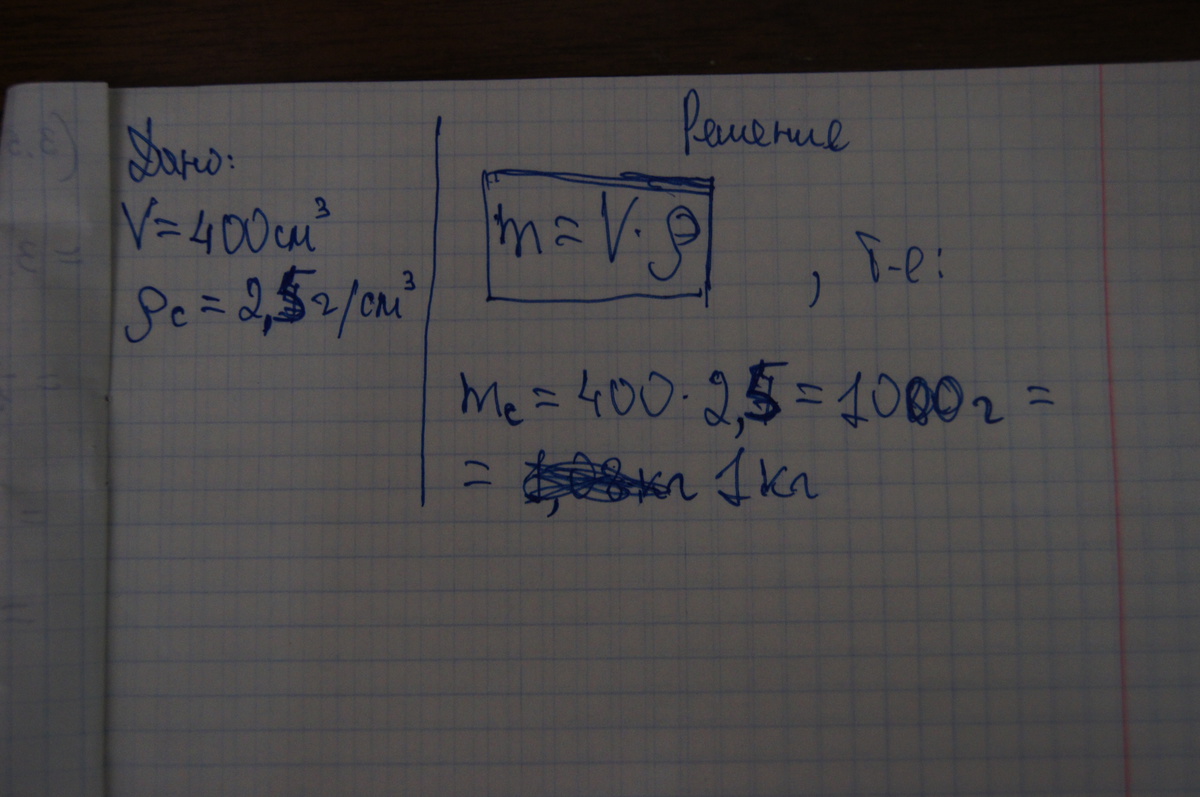 Дано:
V = 400 см³
ρс = 2,5 г/см³
Решение
m = V · ρ
, т-е:
mс = 400 · 2,5 = 1000 г =
= 1 кг